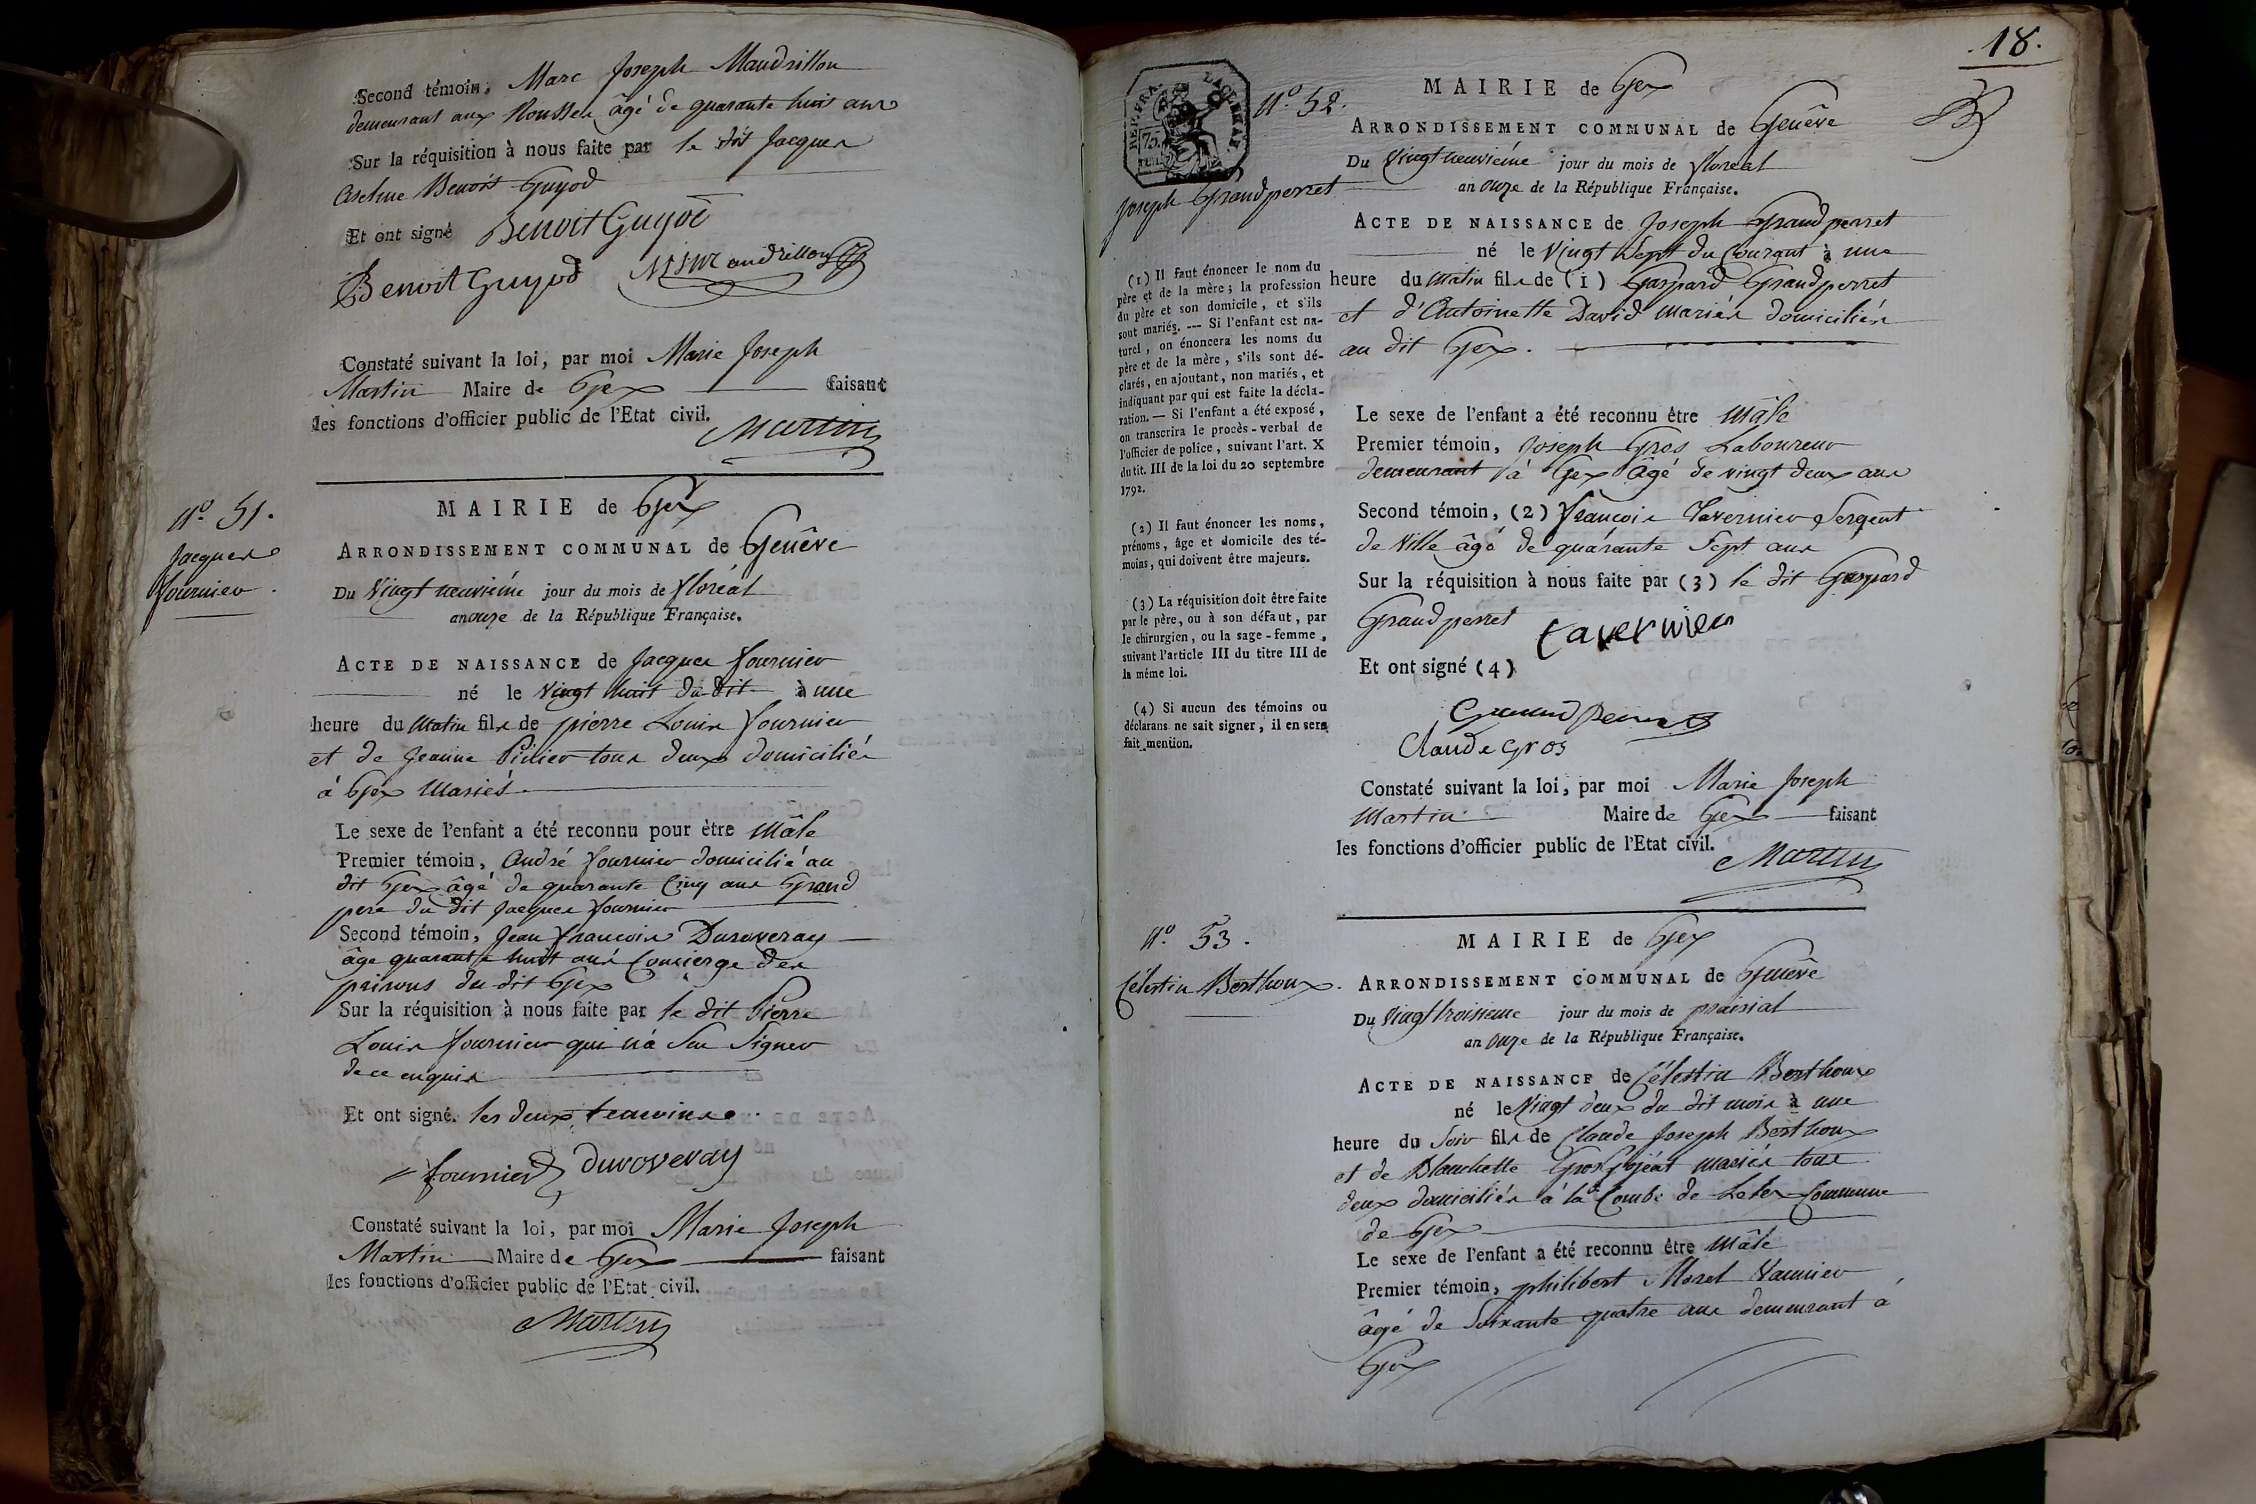 Second témoin, Marc Joseph Maudrillon
demeurant aux Rousses âgé de quarante huit ans
Sur la réquisition à nous faite par le dit Jacques
Benoit Guyod
Et ont signé Benoit Guyod
Benoit Guyod MJ Maudrillon
Constaté suivant la loi, par moi Marie Joseph
Martin Maire de Gex faisant
les fonctions d'officier public de l'Etat civil.
Martin
N.º 51.
Jacques
fournier.
MAIRIE de Gex
ARRONDISSEMENT COMMUNAL de Genêve
Du Vingt neuvième jour du mois de floréal
an onze de la République Française.
ACTE DE NAISSANCE de Jacques fournier
né le Vingt huit du dit à une
heure du matin fils de pierre Louis fournier
et de Jeanne tous deux domiciliés
à Gex Mariés
Le sexe de l'enfant a été reconnu pour être Mâle
Premier témoin, André fournier domicilié au
dit Gex âgé de quarante Cinq ans Grand
pere du dit Jacques fournier
Second témoin, Jean françois Duroveray
âge quarante huit ans Concierge des
prisons du dit Gex
Sur la réquisition à nous faite par le dit Pierre
Louis fournier qui n'a Su Signer
de ce enquis
Et ont signé. les deux temoins.
fournier Duroveray
Constaté suivant la loi, par moi Marie Joseph
Martin Maire de Gex faisant
les fonctions d'officier public de l'Etat civil.
Martin
18.
REP. FRA.
75
N.º 52.
Joseph Grandperret
MAIRIE de Gex
ARRONDISSEMENT COMMUNAL de Genêve
Du Vingt neuvième jour du mois de floréal
an onze de la République Française.
ACTE DE NAISSANCE de Joseph Grandperret
né le Vingt Sept du Courant à une
heure du Matin fils de (1) Gaspard Grandperret
et d'Antoinette David Mariés domiciliés
au dit Gex.
(1) Il faut énoncer le nom du
père et de la mère; la profession
du père et son domicile, et s'ils
sont mariés. --- Si l'enfant est na-
turel, on énoncera les noms du
père et de la mère, s'ils sont dé-
clarés, en ajoutant, non mariés, et
indiquant par qui est faite la décla-
ration. — Si l'enfant a été exposé,
on transcrira le procès-verbal de
l'officier de police, suivant l'art. X
du tit. III de la loi du 20 septembre
1792.
(2) Il faut énoncer les noms,
prénoms, âge et domicile des té-
moins, qui doivent être majeurs.
(3) La réquisition doit être faite
par le père, ou à son défaut, par
le chirurgien, ou la sage-femme,
suivant l'article III du titre III de
la même loi.
(4) Si aucun des témoins ou
déclarans ne sait signer, il en sera
fait mention.
Le sexe de l'enfant a été reconnu être Mâle
Premier témoin, Joseph Gros Laboureur
demeurant à Gex âgé de vingt deux ans
Second témoin, (2) françois Tavernier Sergent
de Ville âgé de quarante Sept ans
Sur la réquisition à nous faite par (3) le dit Gaspard
Grandperret tavernier
Et ont signé (4)
Grandperret
Claude Gros
Constaté suivant la loi, par moi Marie Joseph
Martin Maire de Gex faisant
les fonctions d'officier public de l'Etat civil.
Martin
N.º 53.
Célestin Berthoux.
MAIRIE de Gex
ARRONDISSEMENT COMMUNAL de Genêve
Du Vingt troisieme jour du mois de prairial
an onze de la République Française.
ACTE DE NAISSANCE de Célestin Berthoux
né le Vingt deux du dit mois à une
heure du Soir fils de Claude Joseph Berthoux
et de Blanchette Mariés tous
deux domiciliés à la Combe de Lelex Commune
de Gex
Le sexe de l'enfant a été reconnu être Mâle
Premier témoin, philibert Morel Vannier
âgé de Soixante quatre ans demeurant à
Gex